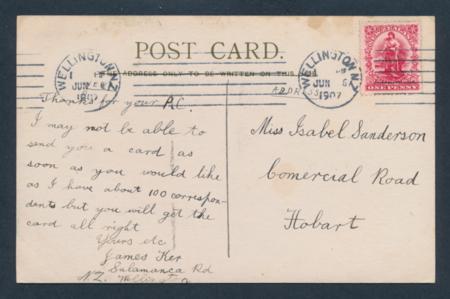 WELLINGTON.N.Z
JUN 6
1907
POST CARD.
ADDRESS ONLY TO BE WRITTEN ON THIS
WELLINGTON.N.Z
JUN 6
1907
ONE PENNY
Thanks for your P.C.
I may not be able to
send you a card as
soon as you would like
as I have about 100 correspon-
dents but you will get the
card all right
Yours etc
James Ker
Salamanca Rd
N.Z. Wellington
Miss Isabel Sanderson
Comercial Road
Hobart